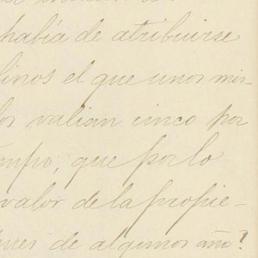 había de atribuirse
linos el que unos mis-
los valian cinco por
empo, que por lo
valor de la propie-
de algunos año?